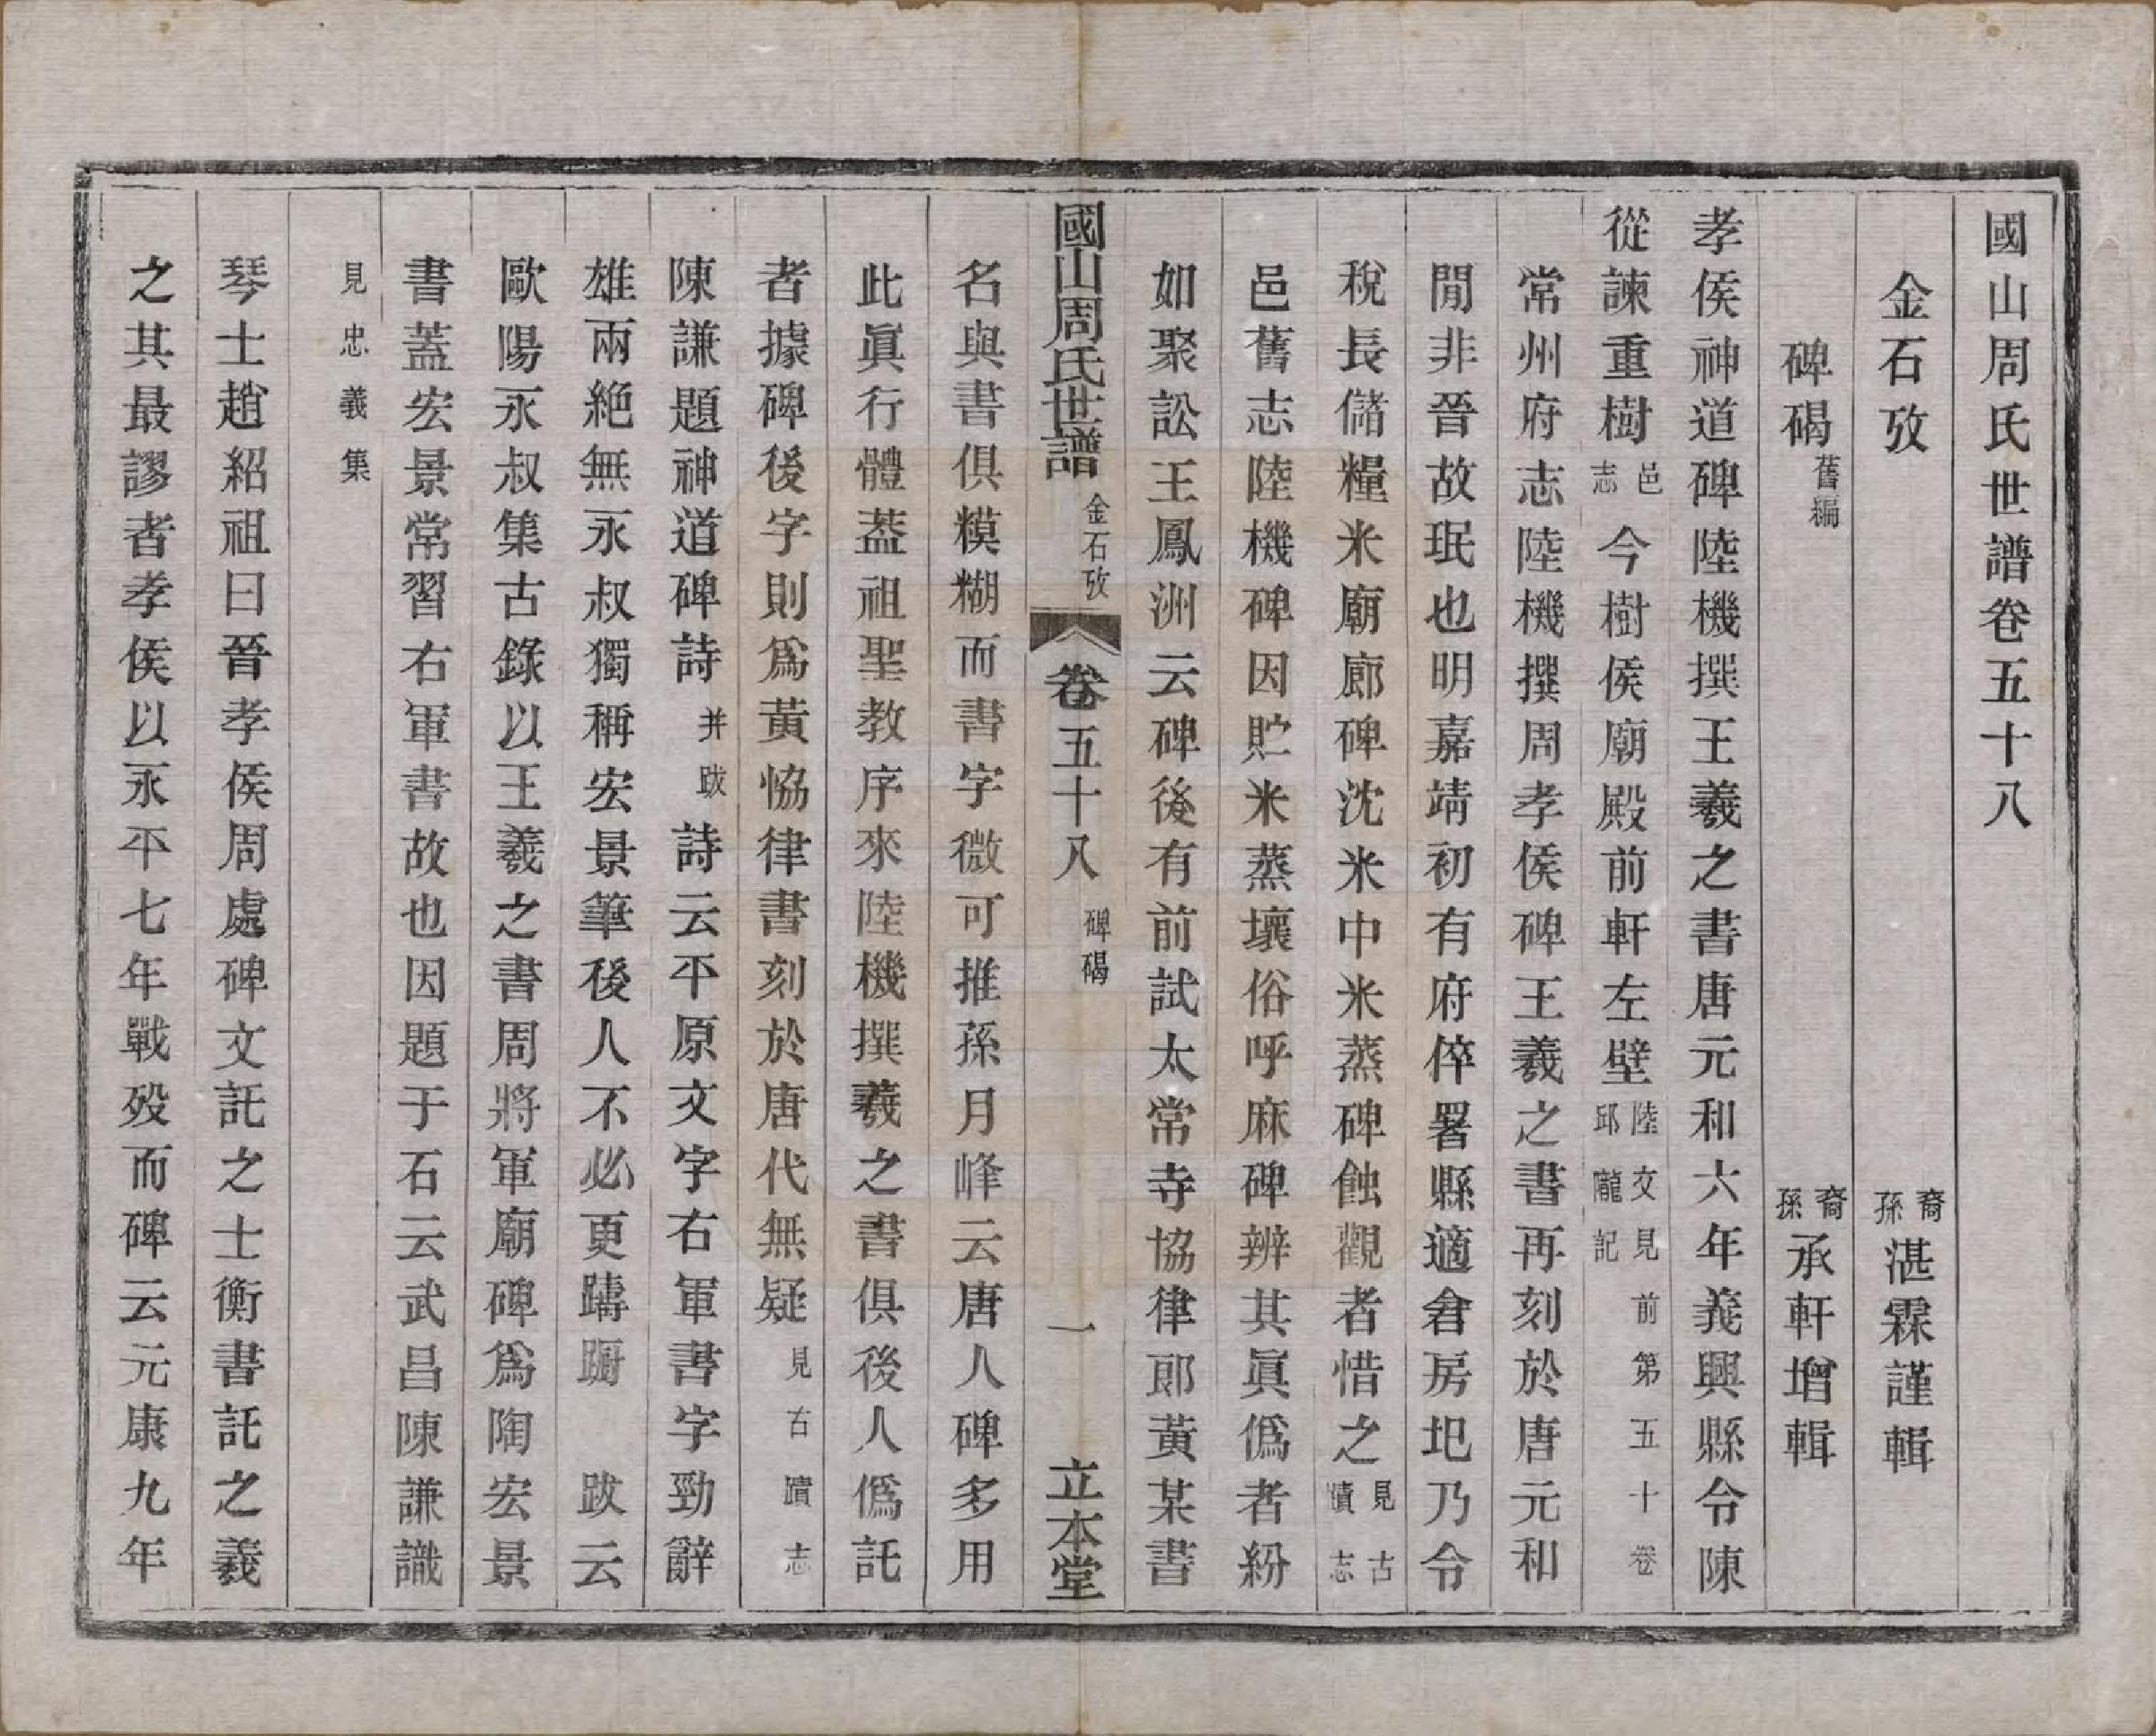 國山周氏世譜卷五十八
金石攷　裔孫湛霖謹輯
碑碣舊編　裔孫承軒增輯
孝侯神道碑陸機撰王羲之書唐元和六年義興縣令陳
從諫重樹邑志今樹侯廟殿前軒左壁陸交見前第五十卷邱隴記
常州府志陸機撰周孝侯碑王羲之書再刻於唐元和
閒非晉故珉也明嘉靖初有府倅署縣適倉房圯乃令
稅長儲糧米廟廊碑沈米中米蒸碑蝕觀者惜之見古蹟志
邑舊志陸機碑因貯米蒸壞俗呼麻碑辨其眞僞者紛
如聚訟王鳳洲云碑後有前試太常寺協律郎黃某書
國山周氏世譜　金石攷　卷五十八　碑碣　一　立本堂
名與書俱糢糊而書字微可推孫月峰云唐人碑多用
此眞行體蓋祖聖教序來陸機撰羲之書俱後人僞託
者據碑後字則爲黃恊律書刻於唐代無疑見古蹟志
陳謙題神道碑詩并跋詩云平原文字右軍書字勁辭
雄兩絶無永叔獨稱宏景筆後人不必更躊躕　跋云
歐陽永叔集古錄以王羲之書周將軍廟碑爲陶宏景
書蓋宏景常習右軍書故也因題于石云武昌陳謙識
見忠義集
琴士趙紹祖曰晉孝侯周處碑文託之士衡書託之羲
之其最謬者孝侯以永平七年戰歿而碑云元康九年